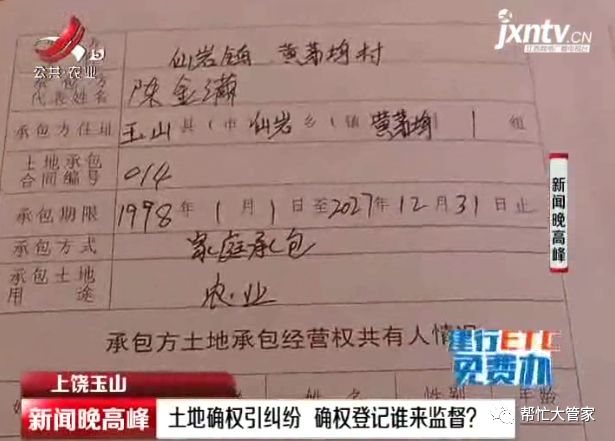 jxntv.CN
公共·农业
仙岩镇 黄茅塆村
承包方
代表姓名 陈金满
承包方住址 玉山县(市 仙岩乡(镇 黄茅塆 1 组
土地承包
合同编号 014
承包期限 1998年1月1日至2027年12月31日止
承包方式 家庭承包
承包土地
用途 农业
承包方土地承包经营权共有人情况
新闻晚高峰
建行ETC
免费办
姓名 性别 年龄
上饶玉山
新闻晚高峰 土地确权引纠纷 确权登记谁来监督?
帮忙大管家